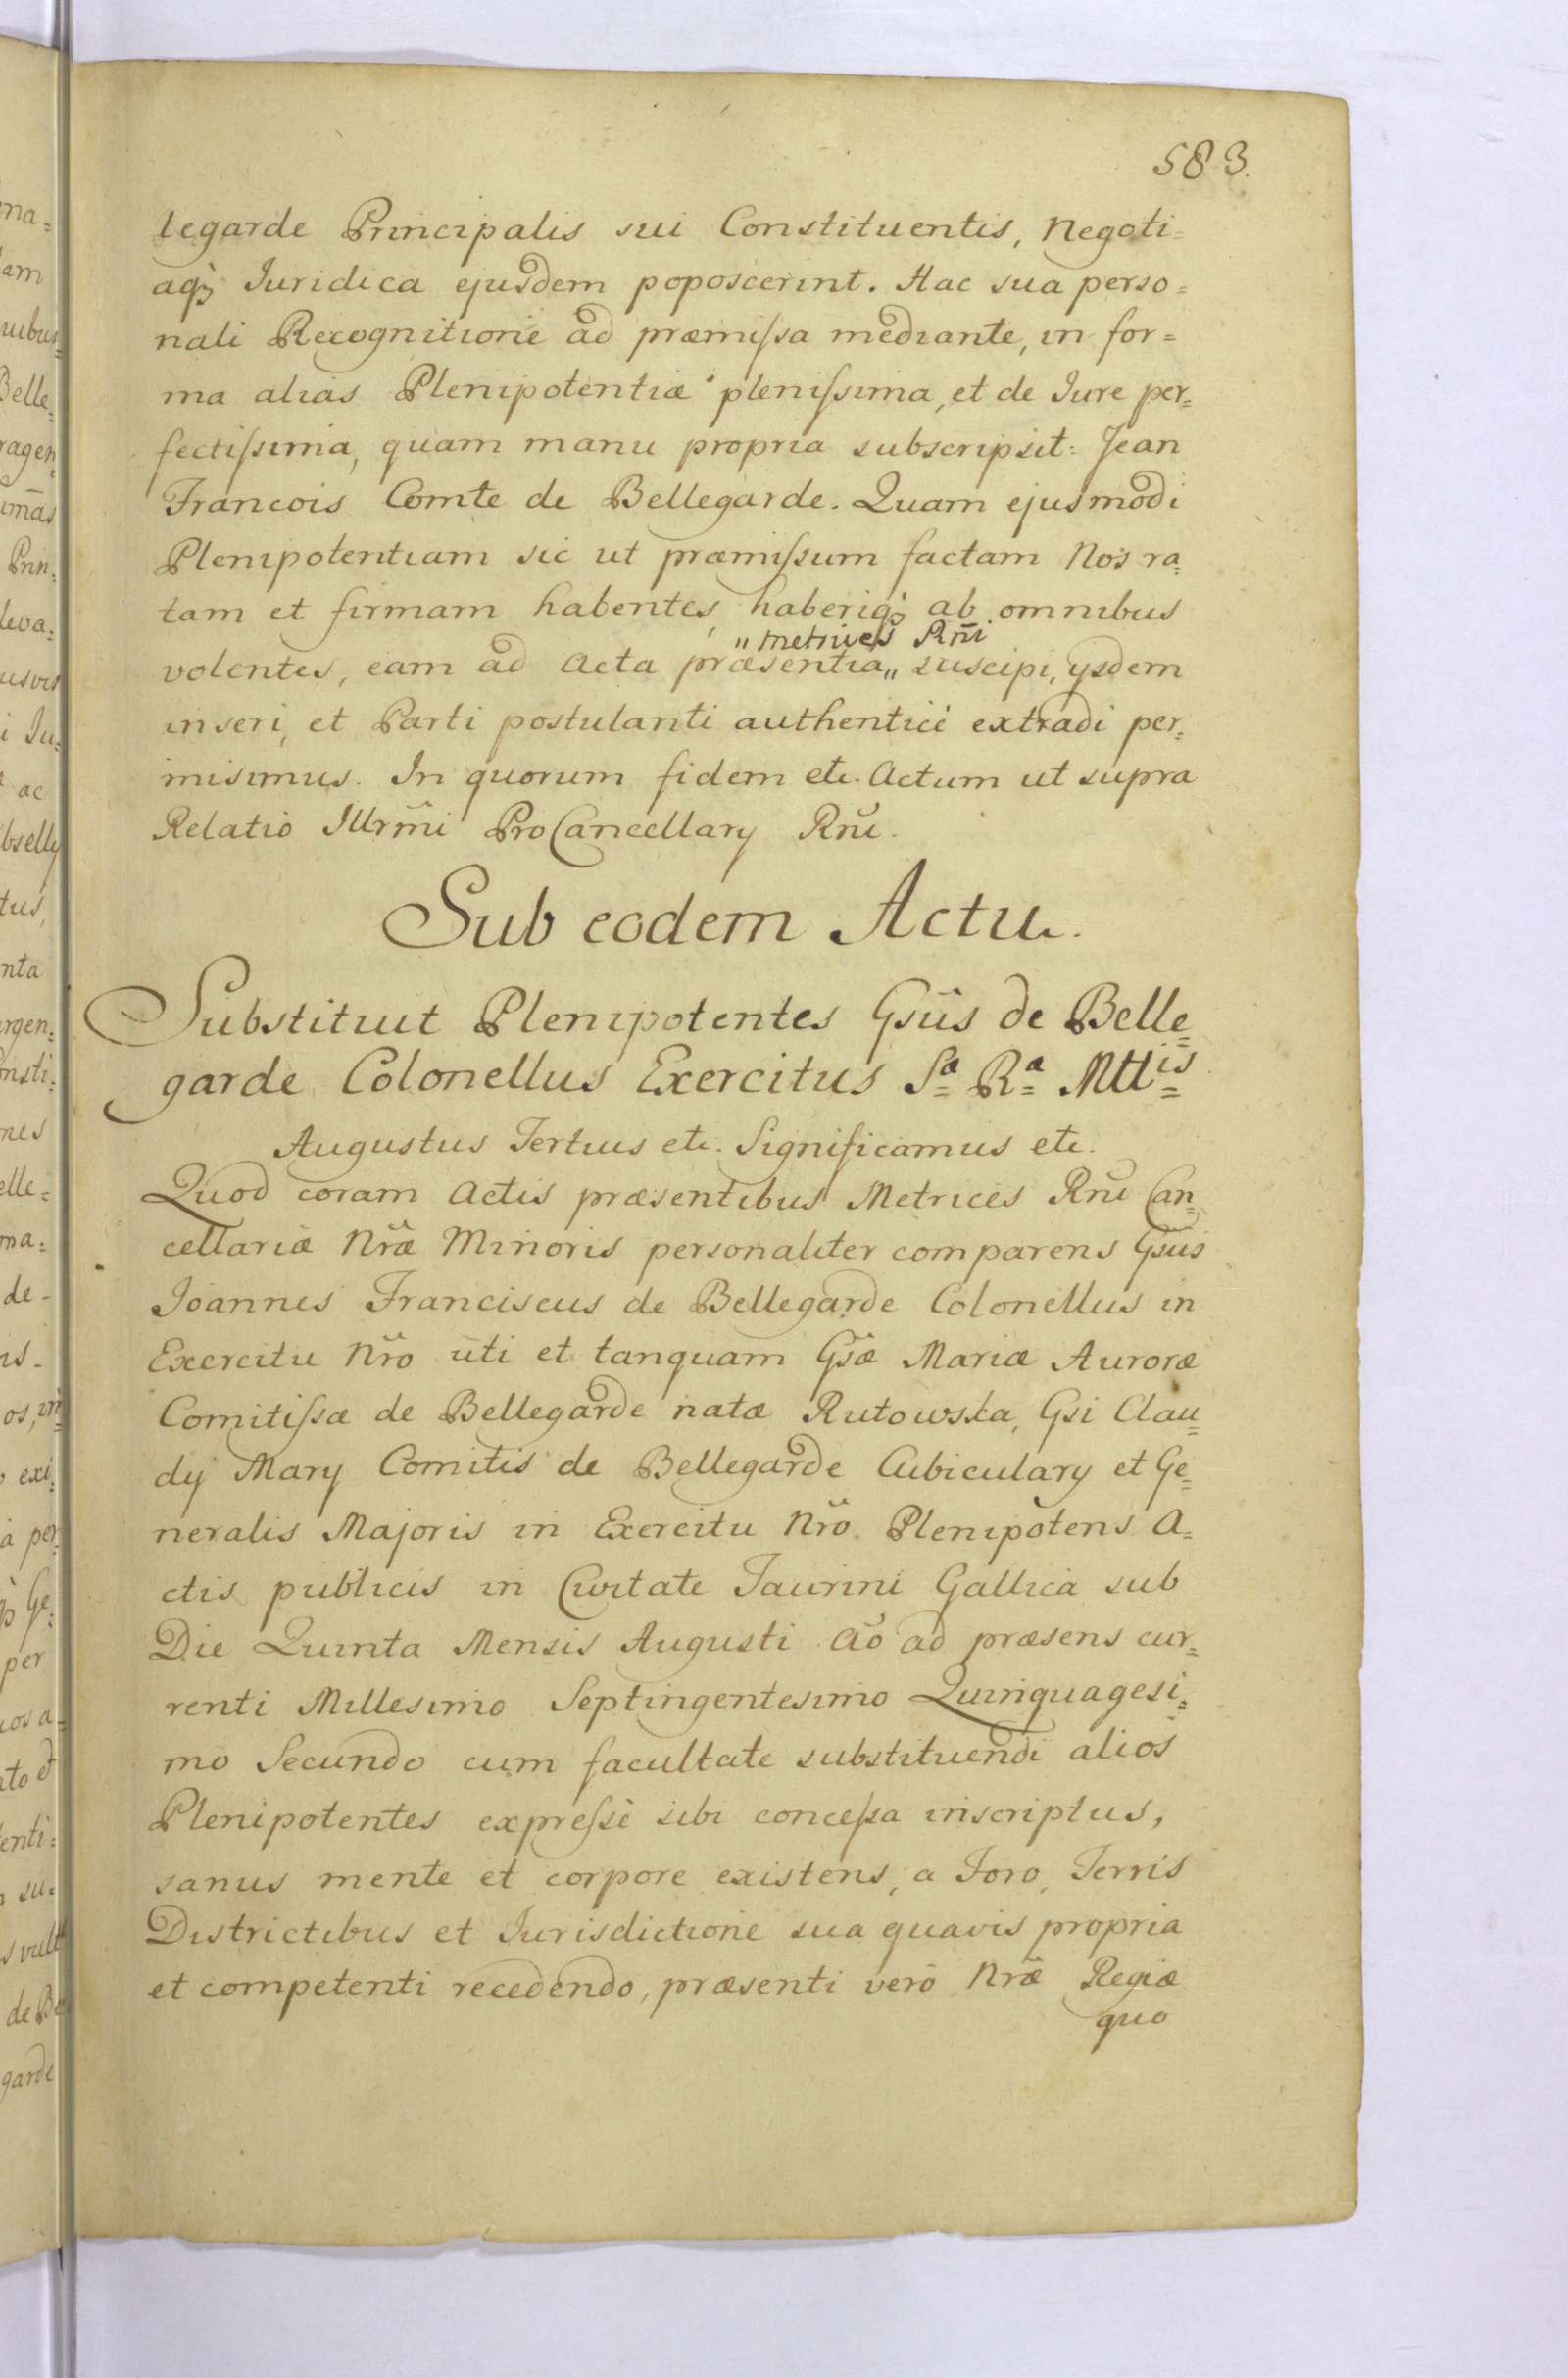 583.
legarde Principalis sui Constituentis, Negoti=
aqꝫ Iuridica ejusdem poposcerint. Hac sua perso=
nali Recognitione ad præmiſsa mediante, in for=
ma alias Plenipotentiæ pleniſsima, et de Iure per=
fectiſsima, quam manu propria subscripsit: Jean
Francois Comte de Bellegarde. Quam ejusmodi
Plenipotentiam sic ut præmiſsum factam Nos ra=
tam et firmam habentes, haberiqꝫ ab omnibus
„ Metrices Rñi
volentes, eam ad Acta præsentia„ suscipi, ijsdem
inseri, et Parti postulanti authenticè extradi per=
misimus. In quorum fidem etc. Actum ut supra
Relatio Illrmi ProCancellarij Rñi.
Sub eodem Actu.
Substituit Plenipotentes Gsüs de Belle=
garde Colonellus Exercitus Sa Ra Mttis
Augustus Tertius etc. Significamus etc.
Quod coram Actis præsentibus Metrices Rñi Can=
cellariæ Nræ Minoris personaliter comparens Gsus
Ioannes Franciscus de Bellegarde Colonellus in
Exercitu Nro uti et tanquam Gsæ Mariæ Auroræ
Comitiſsæ de Bellegarde natæ Rutowska, Gsi Clau=
dij Marij Comitis de Bellegarde Cubicularij et Ge=
neralis Majoris in Exercitu Nro. Plenipotens A=
ctis publicis in Civitate Taurini Gallica sub
Die Quinta Mensis Augusti Aõ ad præsens cur=
renti Millesimo Septingentesimo Quinquagesi=
mo Secundo cum facultate substituendi alios
Plenipotentes expreſsè sibi conceſsa inscriptus,
sanus mente et corpore existens, a Foro, Terris
Districtibus et Iurisdictione sua quavis propria
et competenti recedendo, præsenti verò Nræ Regiæ
quo